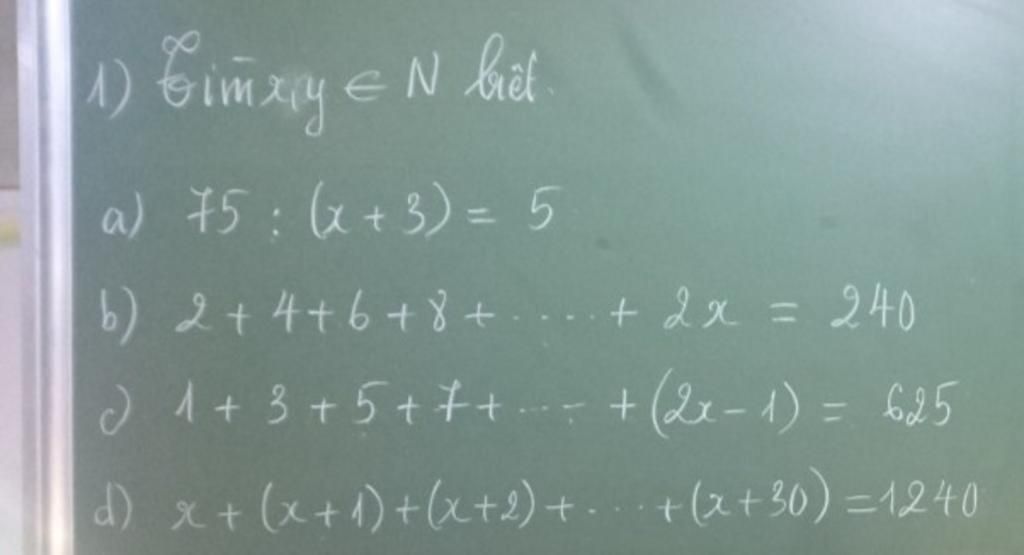 1) Tìm x,y ∈ N biết.
a) 75 : (x + 3) = 5
b) 2 + 4 + 6 + 8 + ..... + 2x = 240
c) 1 + 3 + 5 + 7 + ..... + (2x - 1) = 625
d) x + (x + 1) + (x + 2) + ..... + (x + 30) = 1240